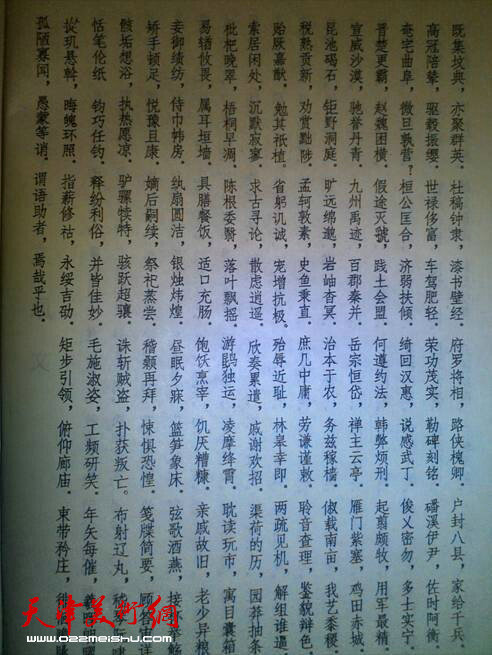 既集坟典，亦聚群英．杜稿钟隶，漆书壁经．府罗将相，路侠槐卿．户封八县，家给千兵．
高冠陪辇，驱毂振缨．世禄侈富，车驾肥轻．荣功茂实，勒碑刻铭．磻溪伊尹，佐时阿衡．
奄宅曲阜，微旦孰营？桓公匡合，济弱扶倾．绮回汉惠，说感武丁．俊乂密勿，多士实宁．
晋楚更霸，赵魏困横．假途灭虢，践土会盟．何遵约法，韩弊烦刑．起翦颇牧，用军最精．
宣威沙漠，驰誉丹青．九州禹迹，百郡秦并．岳宗恒岱，禅主云亭．雁门紫塞，鸡田赤城．
昆池碣石，钜野洞庭．旷远绵邈，岩岫杳冥．治本于农，务兹稼穑．俶载南亩，我艺黍稷．
税熟贡新，劝赏黜陟．孟轲敦素，史鱼秉直．庶几中庸，劳谦谨敕．聆音查理，鉴貌辩色．
贻厥嘉猷，勉其祗植．省躬讥诫，宠增抗极．殆辱近耻，林皋幸即．两疏见机，解组谁逼．
索居闲处，沉默寂寥．求古寻论，散虑逍遥．欣奏累遣，戚谢欢招．渠荷的历，园莽抽条．
枇杷晚翠，梧桐早凋．陈根委翳，落叶飘摇．游鹍独运，凌摩绛霄．耽读玩市，寓目囊箱．
易輶攸畏，属耳垣墙．具膳餐饭，适口充肠．饱饫烹宰，饥厌糟糠．亲戚故旧，老少异粮．
妾御绩纺，侍巾帏房．纨扇圆洁，银烛炜煌．昼眠夕寐，篮笋象床．弦歌酒燕，接
矫手顿足，悦豫且康．嫡后嗣续，祭祀蒸尝．稽颡再拜，悚惧恐惶．笺牒简要，顾
骸垢想浴，执热愿凉．驴骡犊特，骇跃超骧．诛斩贼盗，扑获叛亡．布射辽丸，
恬笔伦纸，钧巧任钓．释纷利俗，并皆佳妙．毛施淑姿，工频研笑．年矢每催，
璇玑悬斡，晦魄环照．指薪修祜，永绥吉劭．矩步引领，俯仰廊庙．束带矜庄，
孤陋寡闻，愚蒙等诮．谓语助者，焉哉乎也．
天津美术网
www.022meishu.com